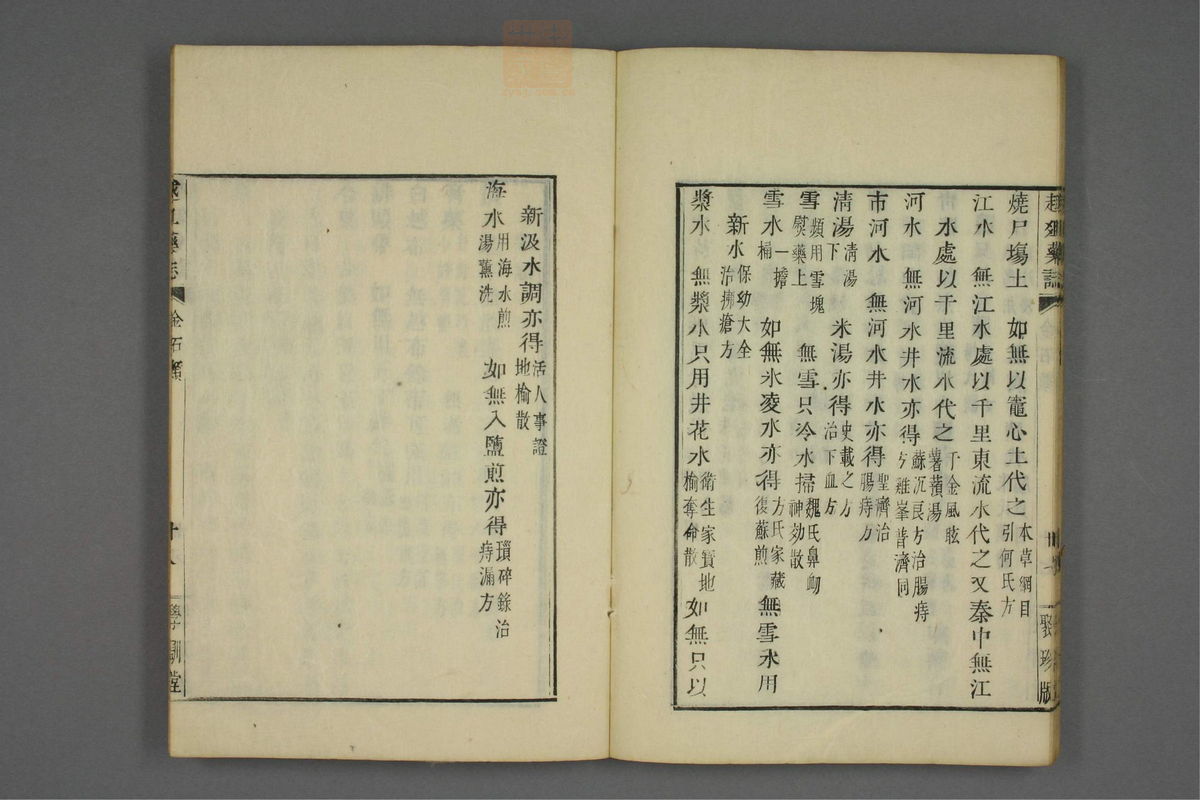 燒尸塲土　如無以竈心土代之本草綱目引何氏方
江水　無江水處以千里東流水代之又秦中無江
水處以千里流水代之千金風眩薯蕷湯
河水　無河水井水亦得蘇沉良方治腸痔方雞峯普濟同
市河水　無河水井水亦得聖濟治腸痔方
清湯清湯下　米湯亦得史載之方治下血方
雪類用雪塊熨藥上　無雪只冷水掃魏氏鼻衂神効散
雪水一擔桶　如無氷凌水亦得方氏家藏復蘇煎　無雪水用
新水保幼大全治摛瘡方
漿水　無漿水只用井花水衛生家寶地榆奪命散　如無只以
聚珍版
新汲水調亦得活人事證地榆散
海水用海水煎湯薰洗　如無入鹽煎亦得瑣碎錄治痔漏方
金石
學訓堂